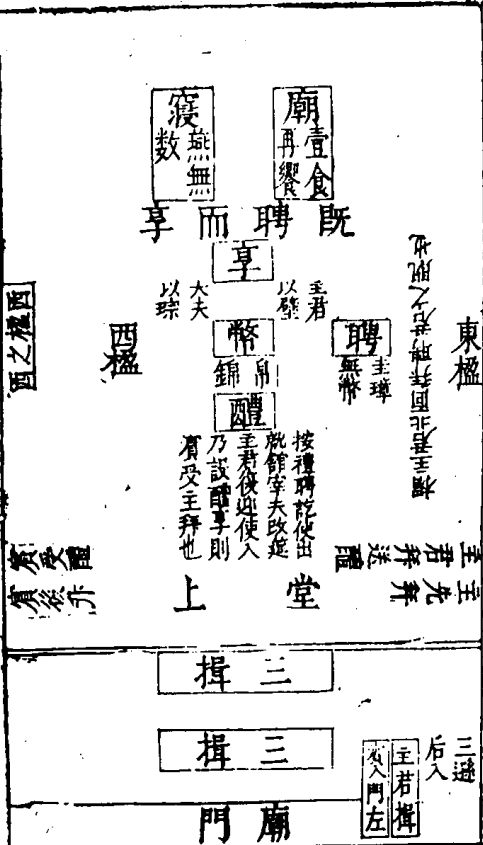 廟
壹食
再饗
寢
燕無
数
既聘而享
享
主君
以璧
大夫
以琮
東楹
楣主君北面拜聘君之貺也
聘
圭璋
無幣
幣
帛
錦
西楹
西楹之西
醴
按禮聘訖使出
就館宰夫改筵
主君復迎使入
乃設醴享則
賓受主拜也
主君拜送醴
主先升
賓受醴
賓後升
堂上
三揖
三揖
三遜
后入
主君揖
賓入門左
廟門